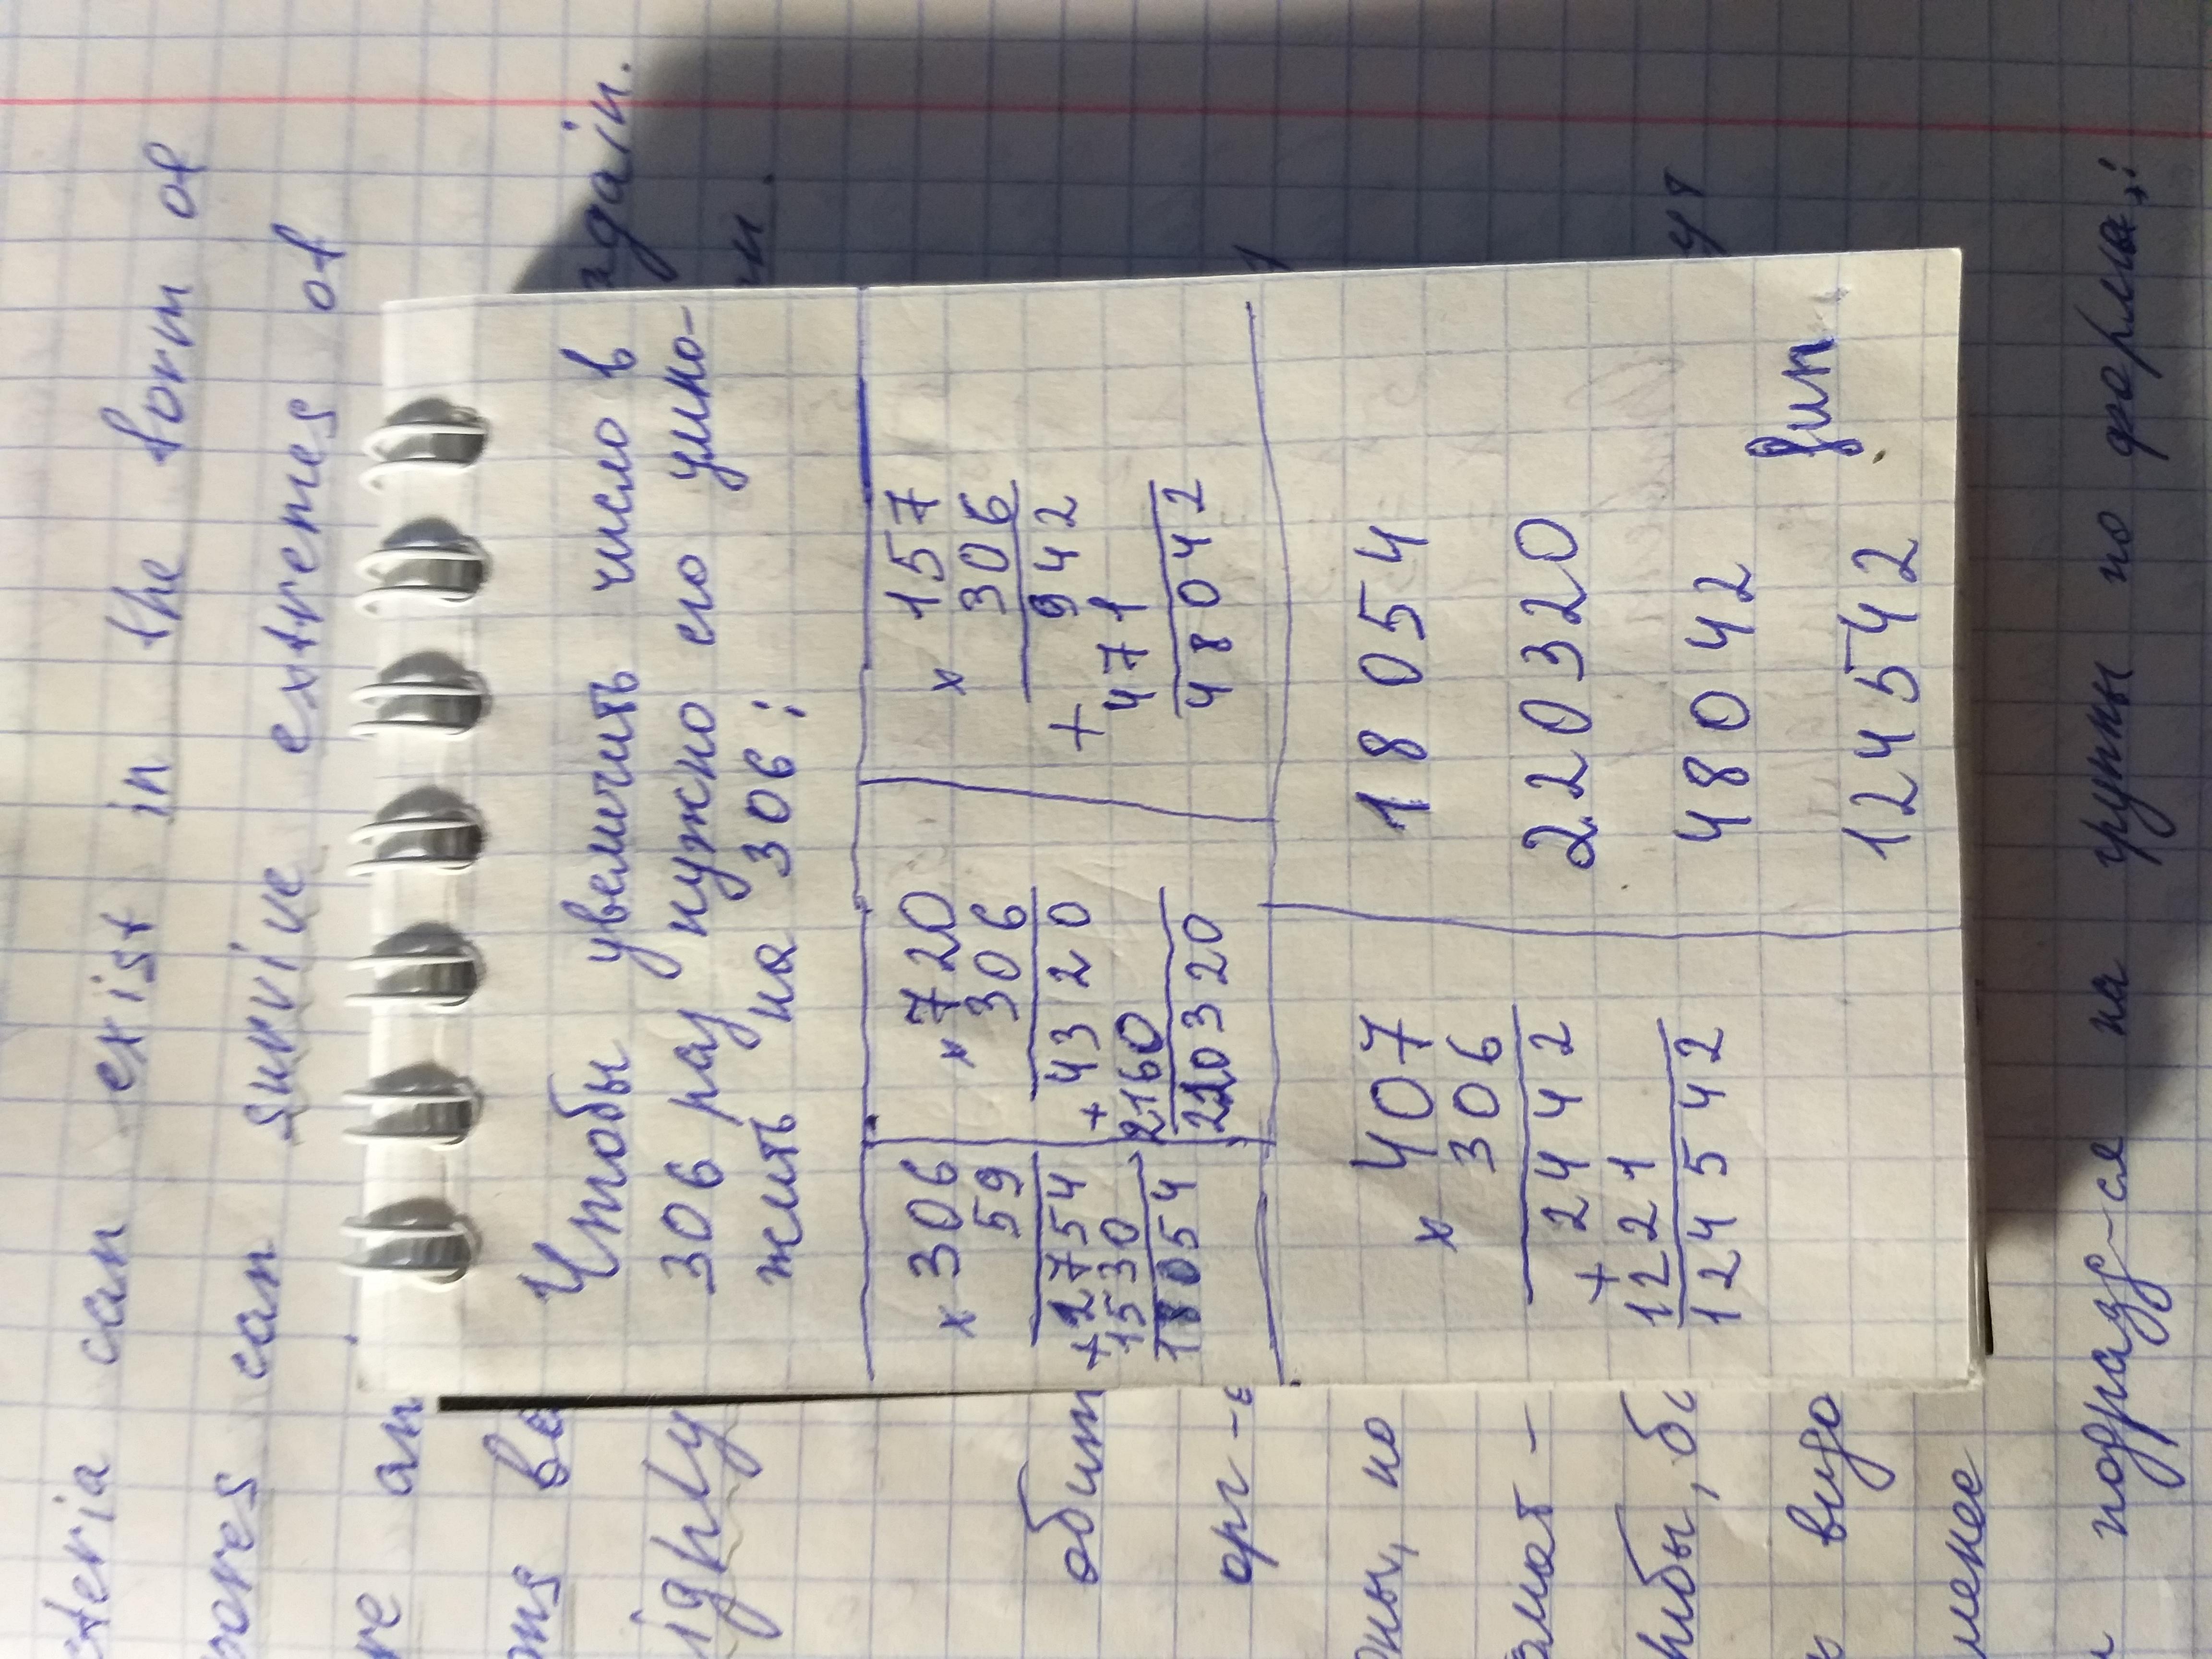 cteria can exist in the form of
pores can survive extremes of
re an
oms be
ighly again.
Чтобы увеличить число в
306 раз нужно его умно-
жить на 306:
× 306
59
+ 2754
1530
18054
× 720
306
+ 4320
2160
220320
× 157
306
+ 942
471
48042
× 407
306
+ 2442
1221
124542
18 054
220320
48042
124542
fин
обит
орг-
но
мат-
грибы, б
видо
менее
подразд-ся на группы по форме: